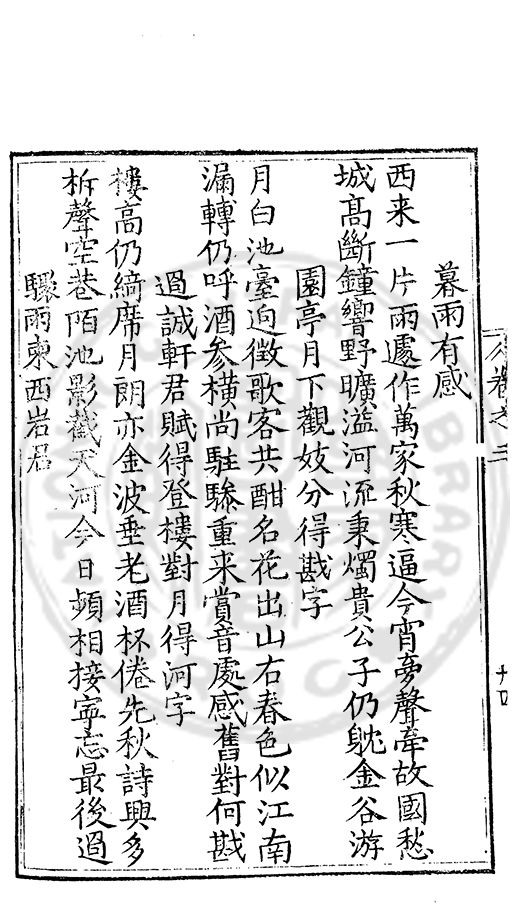 暮雨有感
西来一片雨遽作萬家秋寒逼今宵夢聲牽故國愁
城高斷鐘響野曠溢河流秉燭貴公子仍躭金谷游
園亭月下觀妓分得戡字
月白池臺迥徵歌客共酣名花出山右春色似江南
漏轉仍呼酒參橫尚駐驂重来賞音處感舊對何戡
過誠軒君賦得登樓對月得河字
樓高仍綺席月朗亦金波垂老酒杯倦先秋詩興多
柝聲空巷陌池影截天河今日頻相接寧忘最後過
驟雨柬西岩君
卷之三
十四